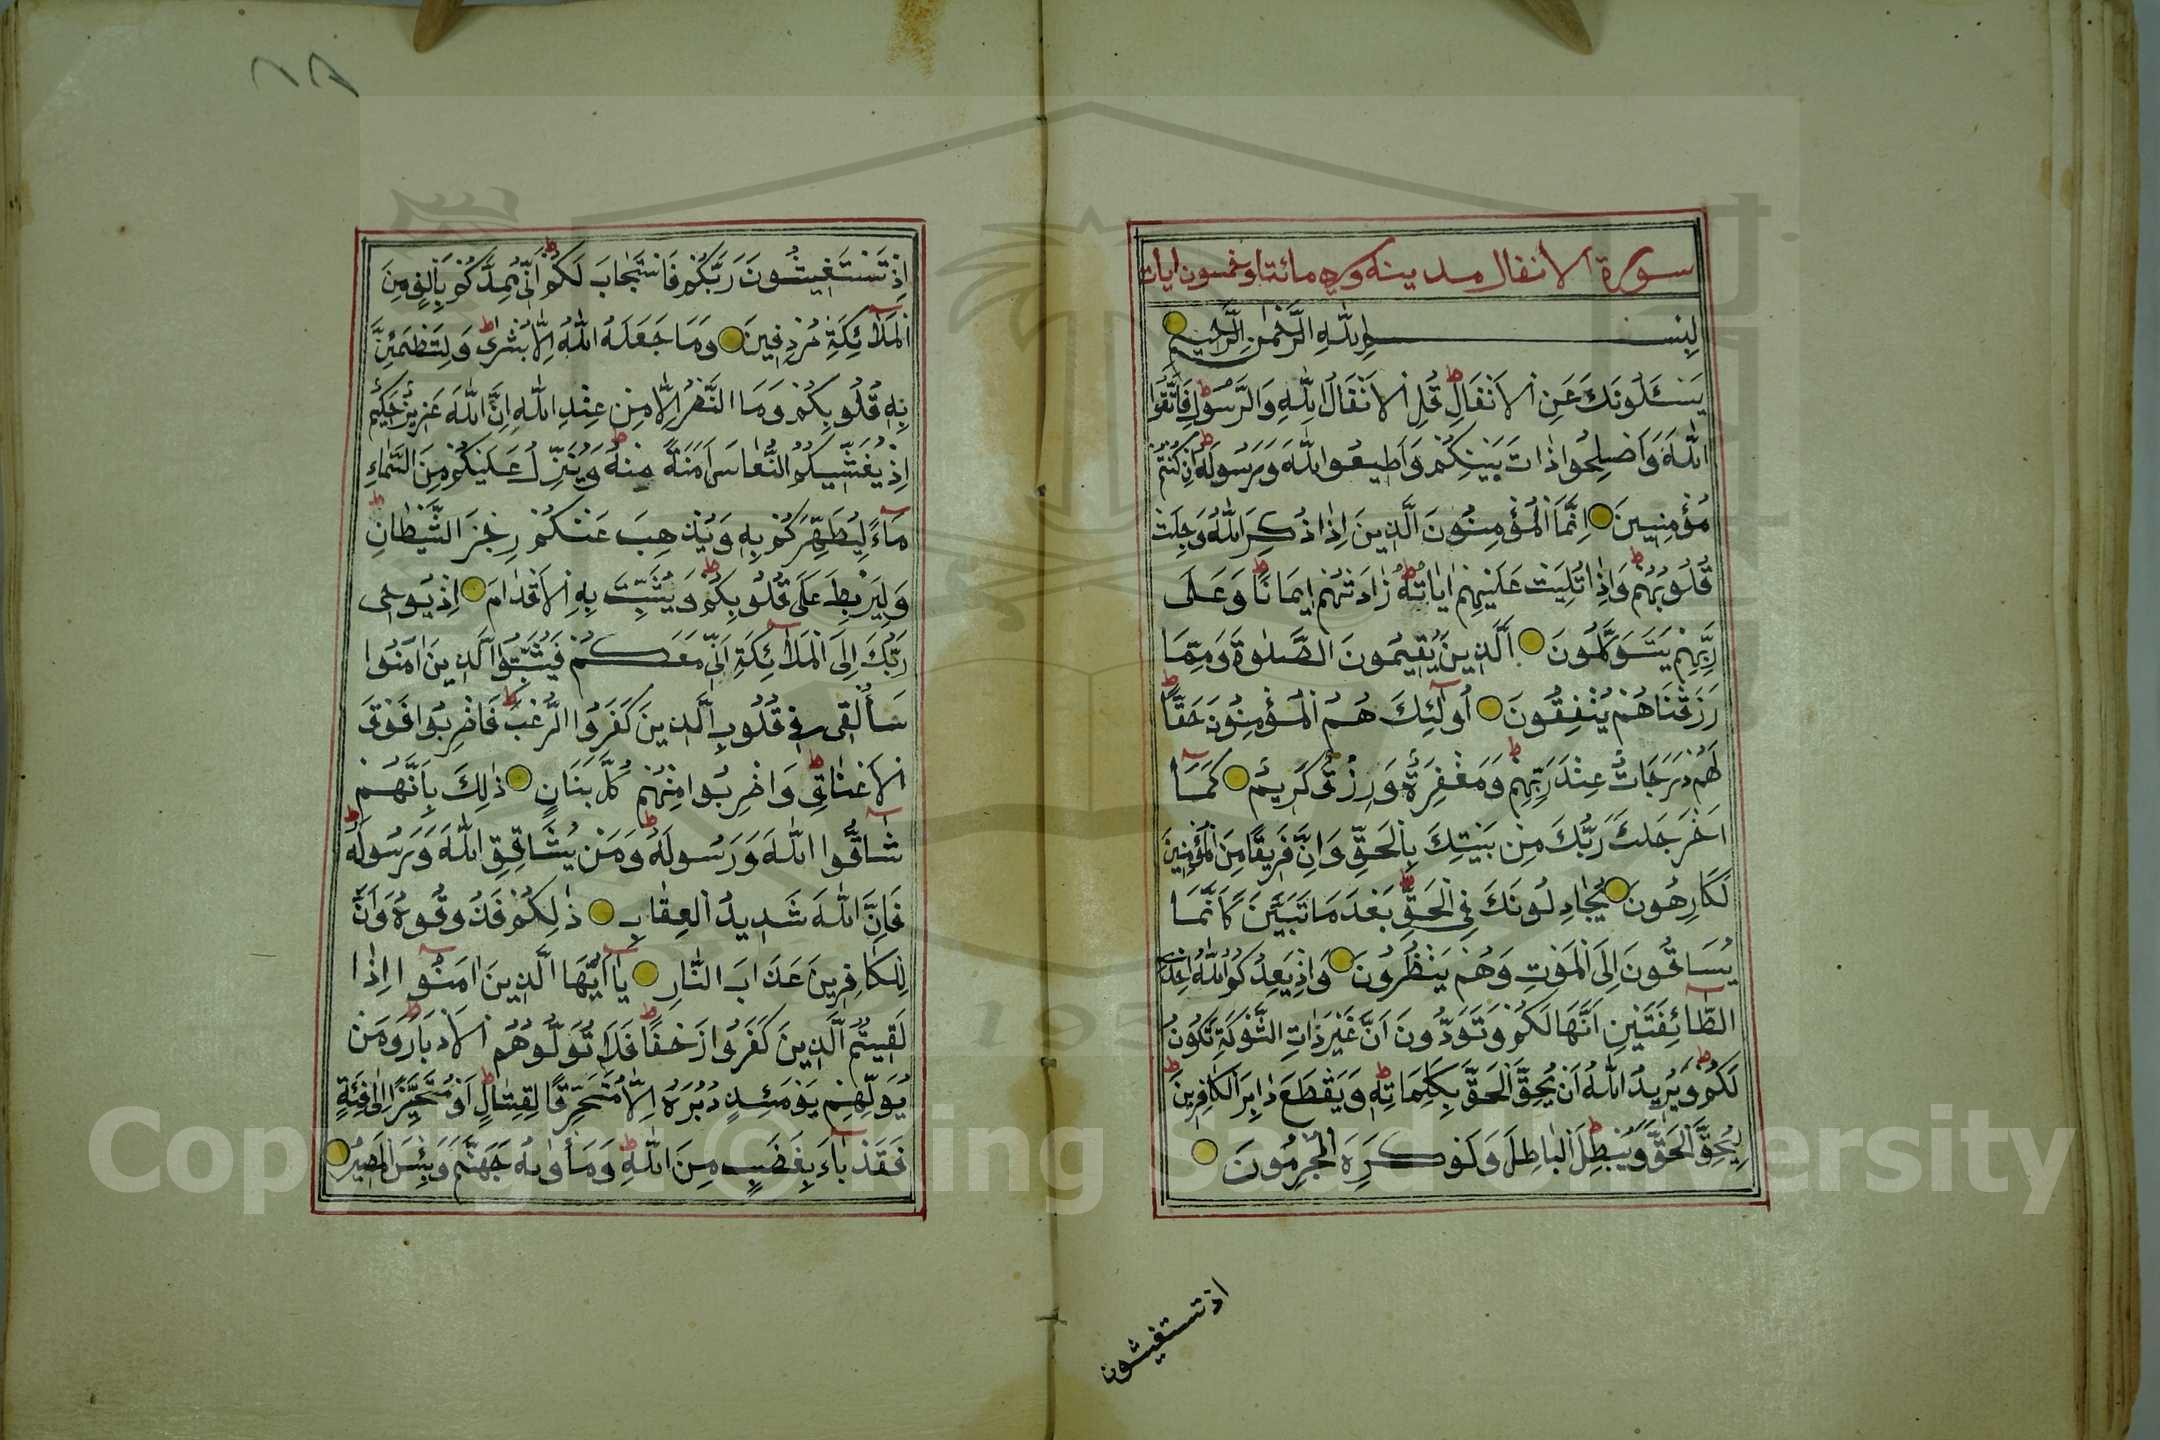 سورة الانفال مدينه وهي مائتا وخمسون ايات
بِسْمِ اللّٰهِ الرَّحْمٰنِ الرَّحِيمِ
يَسْـَٔلُونَكَ عَنِ الْاَنْفَالِ قُلِ الْاَنْفَالُ لِلّٰهِ وَالرَّسُولِ فَاتَّقُوا
اللّٰهَ وَاَصْلِحُوا ذَاتَ بَيْنِكُمْ وَاَطِيعُوا اللّٰهَ وَرَسُولَهُ اِنْ كُنْتُمْ
مُؤْمِنِينَ اِنَّمَا الْمُؤْمِنُونَ الَّذِينَ اِذَا ذُكِرَ اللّٰهُ وَجِلَتْ
قُلُوبُهُمْ وَاِذَا تُلِيَتْ عَلَيْهِمْ اٰيَاتُهُ زَادَتْهُمْ اِيمَانًا وَعَلَى
رَبِّهِمْ يَتَوَكَّلُونَ اَلَّذِينَ يُقِيمُونَ الصَّلٰوةَ وَمِمَّا
رَزَقْنَاهُمْ يُنْفِقُونَ اُولٰٓئِكَ هُمُ الْمُؤْمِنُونَ حَقًّا
لَهُمْ دَرَجَاتٌ عِنْدَ رَبِّهِمْ وَمَغْفِرَةٌ وَرِزْقٌ كَرِيمٌ كَمَٓا
اَخْرَجَكَ رَبُّكَ مِنْ بَيْتِكَ بِالْحَقِّ وَاِنَّ فَرِيقًا مِنَ الْمُؤْمِنِينَ
لَكَارِهُونَ يُجَادِلُونَكَ فِي الْحَقِّ بَعْدَ مَا تَبَيَّنَ كَاَنَّمَا
يُسَاقُونَ اِلَى الْمَوْتِ وَهُمْ يَنْظُرُونَ وَاِذْ يَعِدُكُمُ اللّٰهُ اِحْدَى
الطَّٓائِفَتَيْنِ اَنَّهَا لَكُمْ وَتَوَدُّونَ اَنَّ غَيْرَ ذَاتِ الشَّوْكَةِ تَكُونُ
لَكُمْ وَيُرِيدُ اللّٰهُ اَنْ يُحِقَّ الْحَقَّ بِكَلِمَاتِهِ وَيَقْطَعَ دَابِرَ الْكَافِرِينَ
لِيُحِقَّ الْحَقَّ وَيُبْطِلَ الْبَاطِلَ وَلَوْ كَرِهَ الْمُجْرِمُونَ
اذ تستغيثون
اِذْ تَسْتَغِيثُونَ رَبَّكُمْ فَاسْتَجَابَ لَكُمْ اَنِّي مُمِدُّكُمْ بِاَلْفٍ مِنَ
الْمَلٰٓئِكَةِ مُرْدِفِينَ وَمَا جَعَلَهُ اللّٰهُ اِلَّا بُشْرٰى وَلِتَطْمَئِنَّ
بِهِ قُلُوبُكُمْ وَمَا النَّصْرُ اِلَّا مِنْ عِنْدِ اللّٰهِ اِنَّ اللّٰهَ عَزِيزٌ حَكِيمٌ
اِذْ يُغَشِّيكُمُ النُّعَاسَ اَمَنَةً مِنْهُ وَيُنَزِّلُ عَلَيْكُمْ مِنَ السَّمَاءِ
مَٓاءً لِيُطَهِّرَكُمْ بِهِ وَيُذْهِبَ عَنْكُمْ رِجْزَ الشَّيْطَانِ
وَلِيَرْبِطَ عَلَى قُلُوبِكُمْ وَيُثَبِّتَ بِهِ الْاَقْدَامَ اِذْ يُوحِى
رَبُّكَ اِلَى الْمَلٰٓئِكَةِ اَنِّي مَعَكُمْ فَثَبِّتُوا الَّذِينَ اٰمَنُوا
سَاُلْقِى فِي قُلُوبِ الَّذِينَ كَفَرُوا الرُّعْبَ فَاضْرِبُوا فَوْقَ
الْاَعْنَاقِ وَاضْرِبُوا مِنْهُمْ كُلَّ بَنَانٍ ذٰلِكَ بِاَنَّهُمْ
شَٓاقُّوا اللّٰهَ وَرَسُولَهُ وَمَنْ يُشَاقِقِ اللّٰهَ وَرَسُولَهُ
فَاِنَّ اللّٰهَ شَدِيدُ الْعِقَابِ ذٰلِكُمْ فَذُوقُوهُ وَاَنَّ
لِلْكَافِرِينَ عَذَابَ النَّارِ يَٓا اَيُّهَا الَّذِينَ اٰمَنُٓوا اِذَا
لَقِيتُمُ الَّذِينَ كَفَرُوا زَحْفًا فَلَا تُوَلُّوهُمُ الْاَدْبَارَ وَمَنْ
يُوَلِّهِمْ يَوْمَئِذٍ دُبُرَهُ اِلَّا مُتَحَرِّفًا لِقِتَالٍ اَوْ مُتَحَيِّزًا اِلٰى فِئَةٍ
فَقَدْ بَٓاءَ بِغَضَبٍ مِنَ اللّٰهِ وَمَأْوٰيهُ جَهَنَّمُ وَبِئْسَ الْمَصِيرُ
Copyright © King Saud University